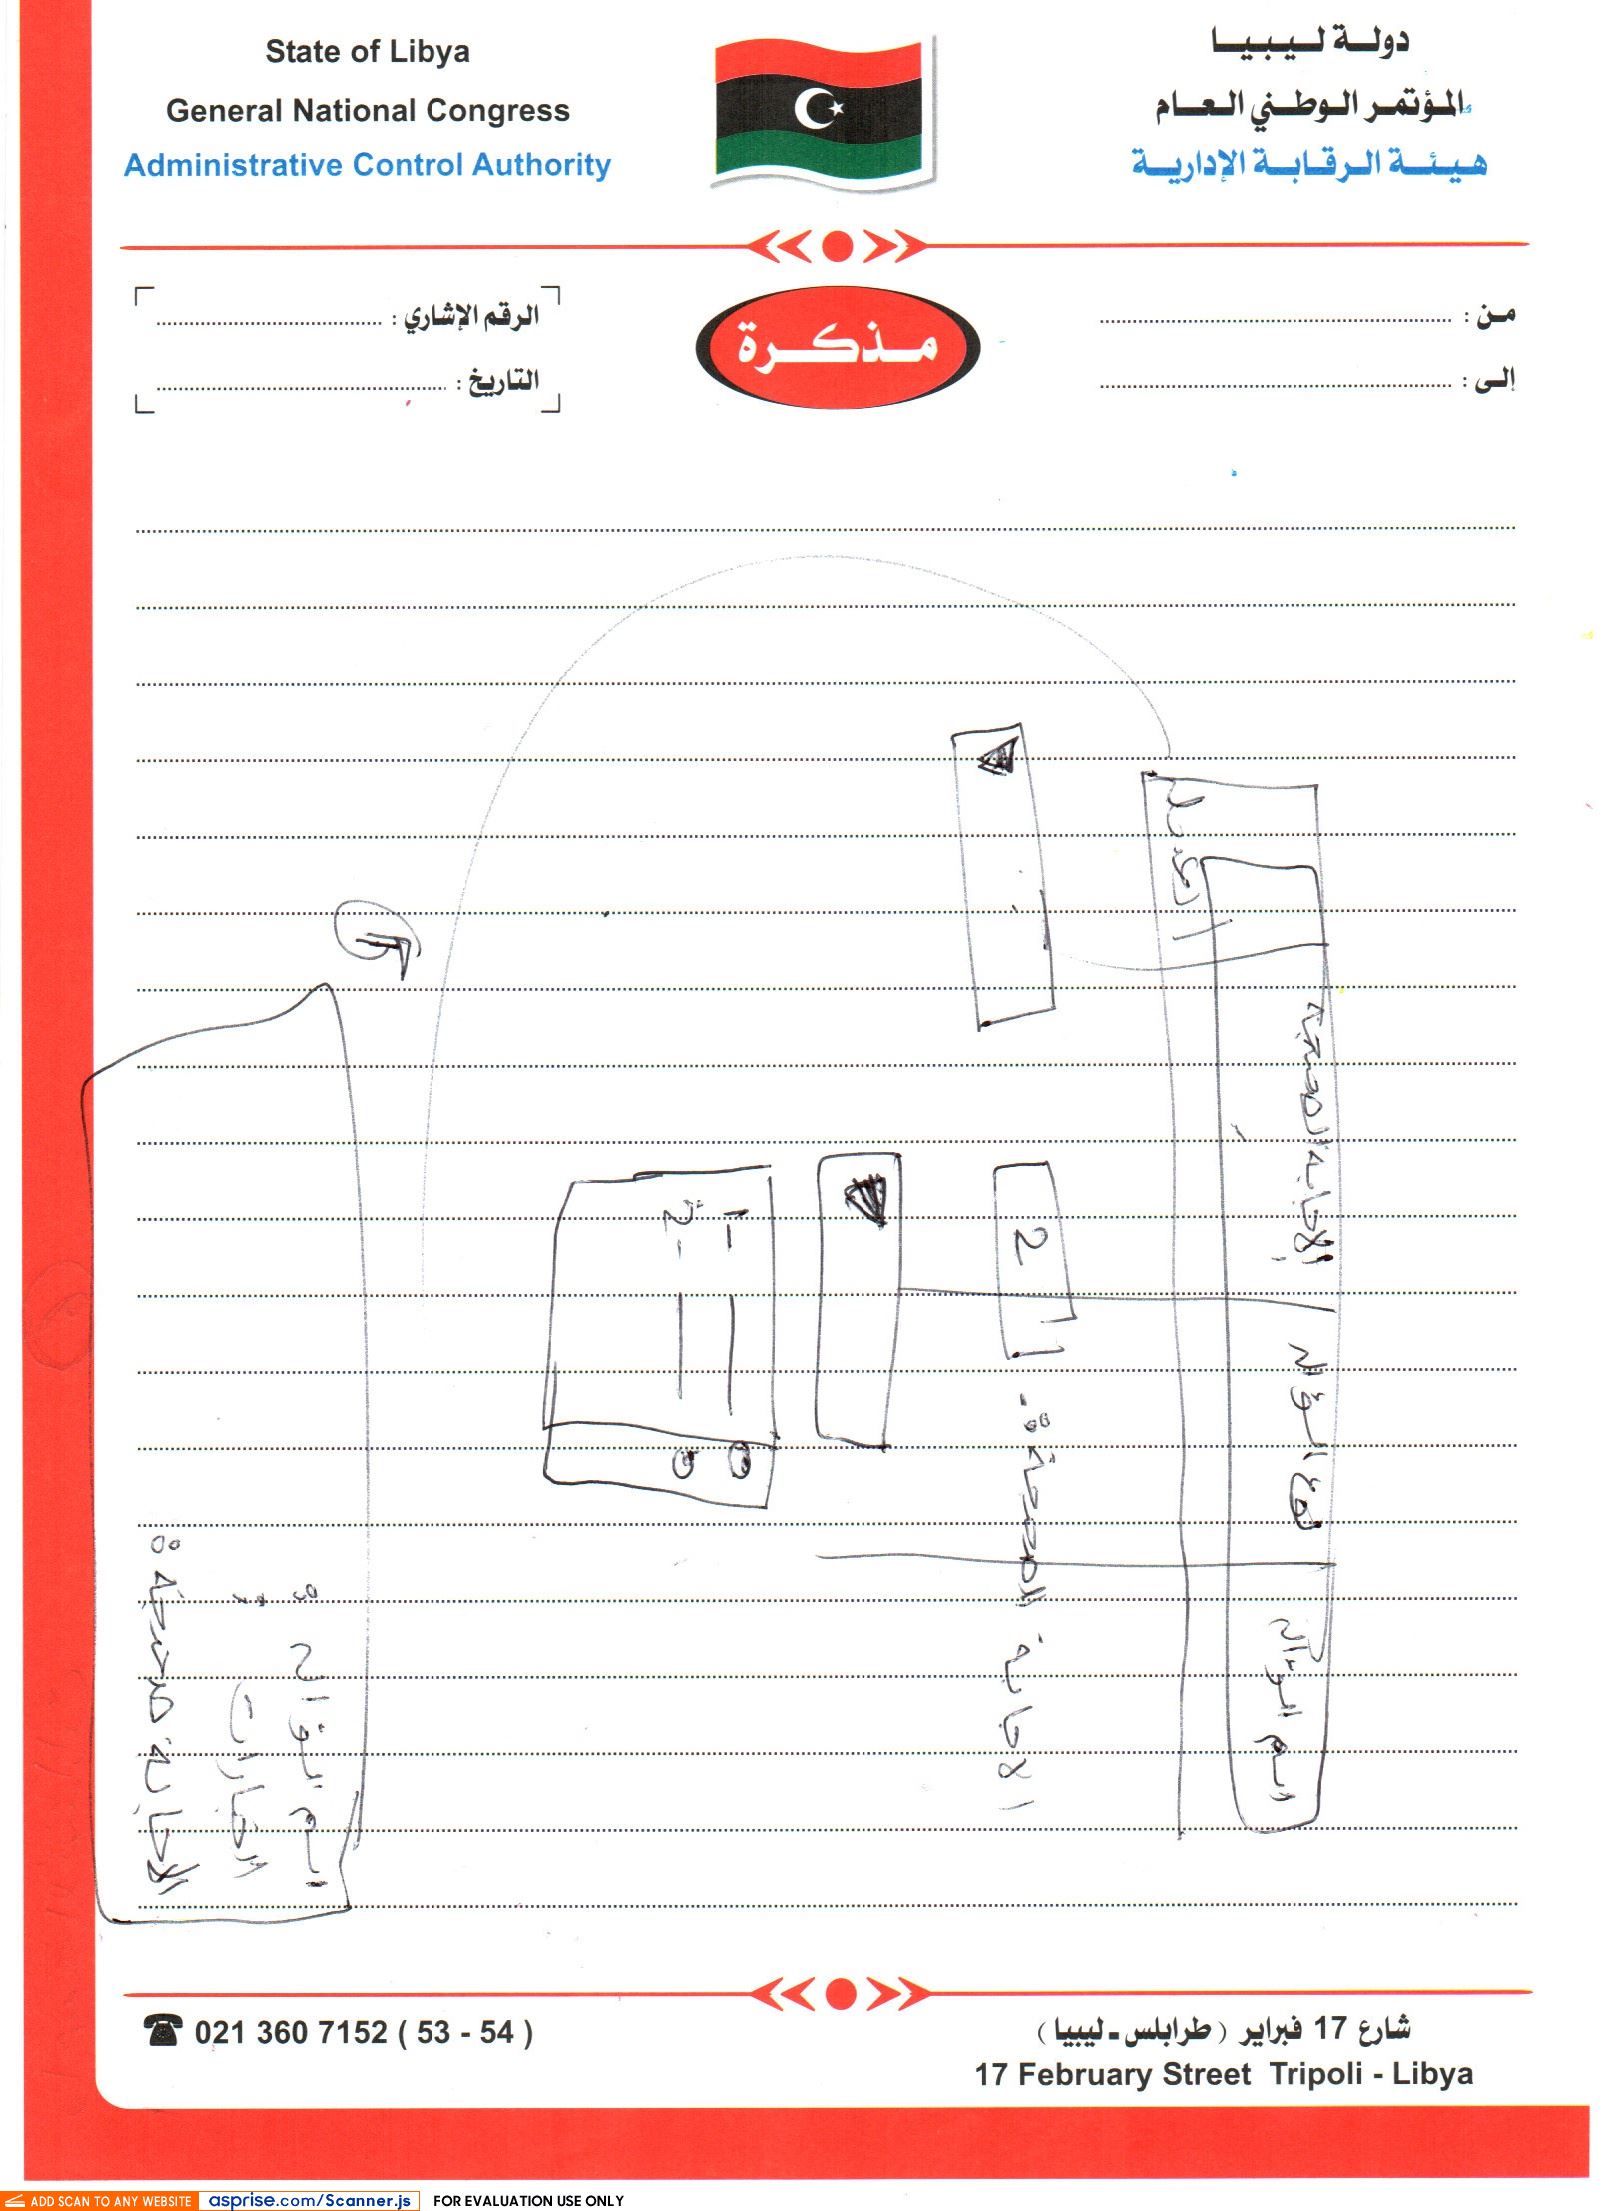 State of Libya
General National Congress
Administrative Control Authority
دولة ليبيا
المؤتمر الوطني العام
هيئة الرقابة الإدارية
من :
إلى :
مذكرة
الرقم الإشاري :
التاريخ :
اسم السؤال
نوع السؤال
الإجابة الصحيحة
الاجابة الصحيحة :-
2
1-
2-
اسم السؤال :
الخيارات :
الاجابة الصحيحة :
021 360 7152 ( 53 - 54 )
شارع 17 فبراير ( طرابلس - ليبيا )
17 February Street Tripoli - Libya
ADD SCAN TO ANY WEBSITE asprise.com/Scanner.js FOR EVALUATION USE ONLY